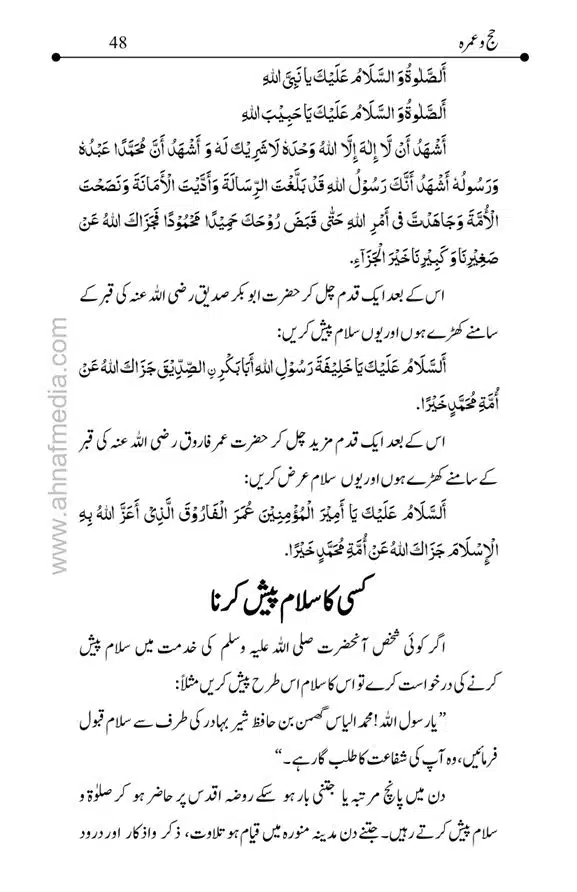 حج و عمرہ
48
أَلصَّلٰوةُ وَ السَّلَامُ عَلَيْكَ يَا نَبِيَّ اللهِ
أَلصَّلٰوةُ وَ السَّلَامُ عَلَيْكَ يَا حَبِيْبَ اللهِ
أَشْهَدُ أَنْ لَّا إِلٰهَ إِلَّا اللهُ وَحْدَهٗ لَا شَرِيْكَ لَهٗ وَ أَشْهَدُ أَنَّ مُحَمَّدًا عَبْدُهٗ
وَرَسُولُهٗ أَشْهَدُ أَنَّكَ رَسُوْلُ اللهِ قَدْ بَلَّغْتَ الرِّسَالَةَ وَأَدَّيْتَ الْأَمَانَةَ وَنَصَحْتَ
الْأُمَّةَ وَجَاهَدْتَّ فِى أَمْرِ اللهِ حَتّٰى قَبَضَ رُوْحَكَ حَمِيْدًا مَحْمُوْدًا فَجَزَاكَ اللهُ عَنْ
صَغِيْرِنَا وَ كَبِيْرِنَا خَيْرَ الْجَزَآءِ.
اس کے بعد ایک قدم چل کر حضرت ابو بکر صدیق رضی اللہ عنہ کی قبر کے
سامنے کھڑے ہوں اور یوں سلام پیش کریں:
أَلسَّلَامُ عَلَيْكَ يَا خَلِيْفَةَ رَسُوْلِ اللهِ أَبَا بَكْرِنِ الصِّدِّيْقَ جَزَاكَ اللهُ عَنْ
أُمَّةِ مُحَمَّدٍ خَيْرًا.
اس کے بعد ایک قدم مزید چل کر حضرت عمر فاروق رضی اللہ عنہ کی قبر
کے سامنے کھڑے ہوں اور یوں سلام عرض کریں:
أَلسَّلَامُ عَلَيْكَ يَا أَمِيْرَ الْمُؤْمِنِيْنَ عُمَرَ الْفَارُوْقَ الَّذِيْ أَعَزَّ اللهُ بِهِ
الْإِسْلَامَ جَزَاكَ اللهُ عَنْ أُمَّةِ مُحَمَّدٍ خَيْرًا.
کسی کا سلام پیش کرنا
اگر کوئی شخص آنحضرت صلی اللہ علیہ وسلم کی خدمت میں سلام پیش
کرنے کی درخواست کرے تو اس کا سلام اس طرح پیش کریں مثلاً:
”یا رسول اللہ! محمد الیاس گھمن بن حافظ شیر بہادر کی طرف سے سلام قبول
فرمائیں، وہ آپ کی شفاعت کا طلب گار ہے۔“
دن میں پانچ مرتبہ یا جتنی بار ہو سکے روضہ اقدس پر حاضر ہو کر صلوٰۃ و
سلام پیش کرتے رہیں۔ جتنے دن مدینہ منورہ میں قیام ہو تلاوت، ذکر واذکار اور درود
www.ahnafmedia.com